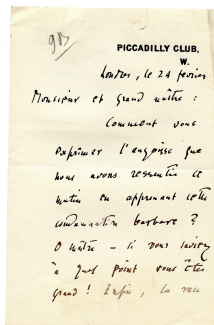 9B
PICCADILLY CLUB,
W.
Londres, le 24 fevrier
Monsieur et grand maître :
Comment vous
exprimer l'angoisse que
nous avons ressentie ce
matin en apprenant cette
condamnation barbare ?
O maître — si vous saviez
à quel point vous êtes
grand ! Enfin, la